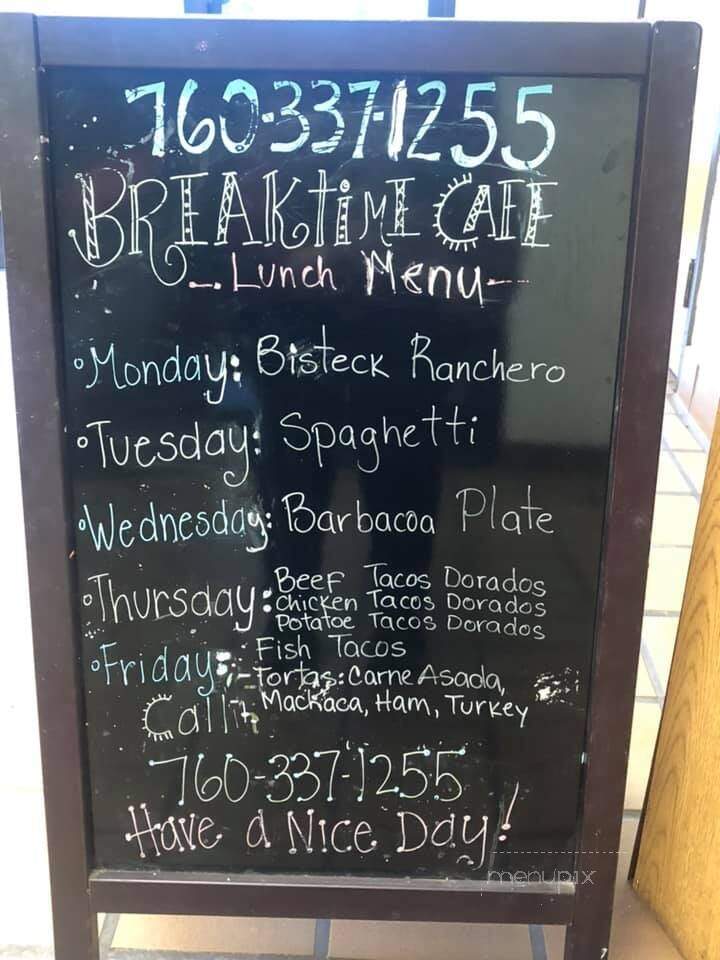 760-337-1255
BREAKTiME CAFE
-.. Lunch Menu --
◦Monday: Bisteck Ranchero
◦Tuesday: Spaghetti
◦Wednesday: Barbacoa Plate
◦Thursday: Beef Tacos Dorados
Chicken Tacos Dorados
Potatoe Tacos Dorados
◦Friday: Fish Tacos
-Tortas: Carne Asada,
Machaca, Ham, Turkey
Call
760-337-1255
Have a Nice Day!
menupix